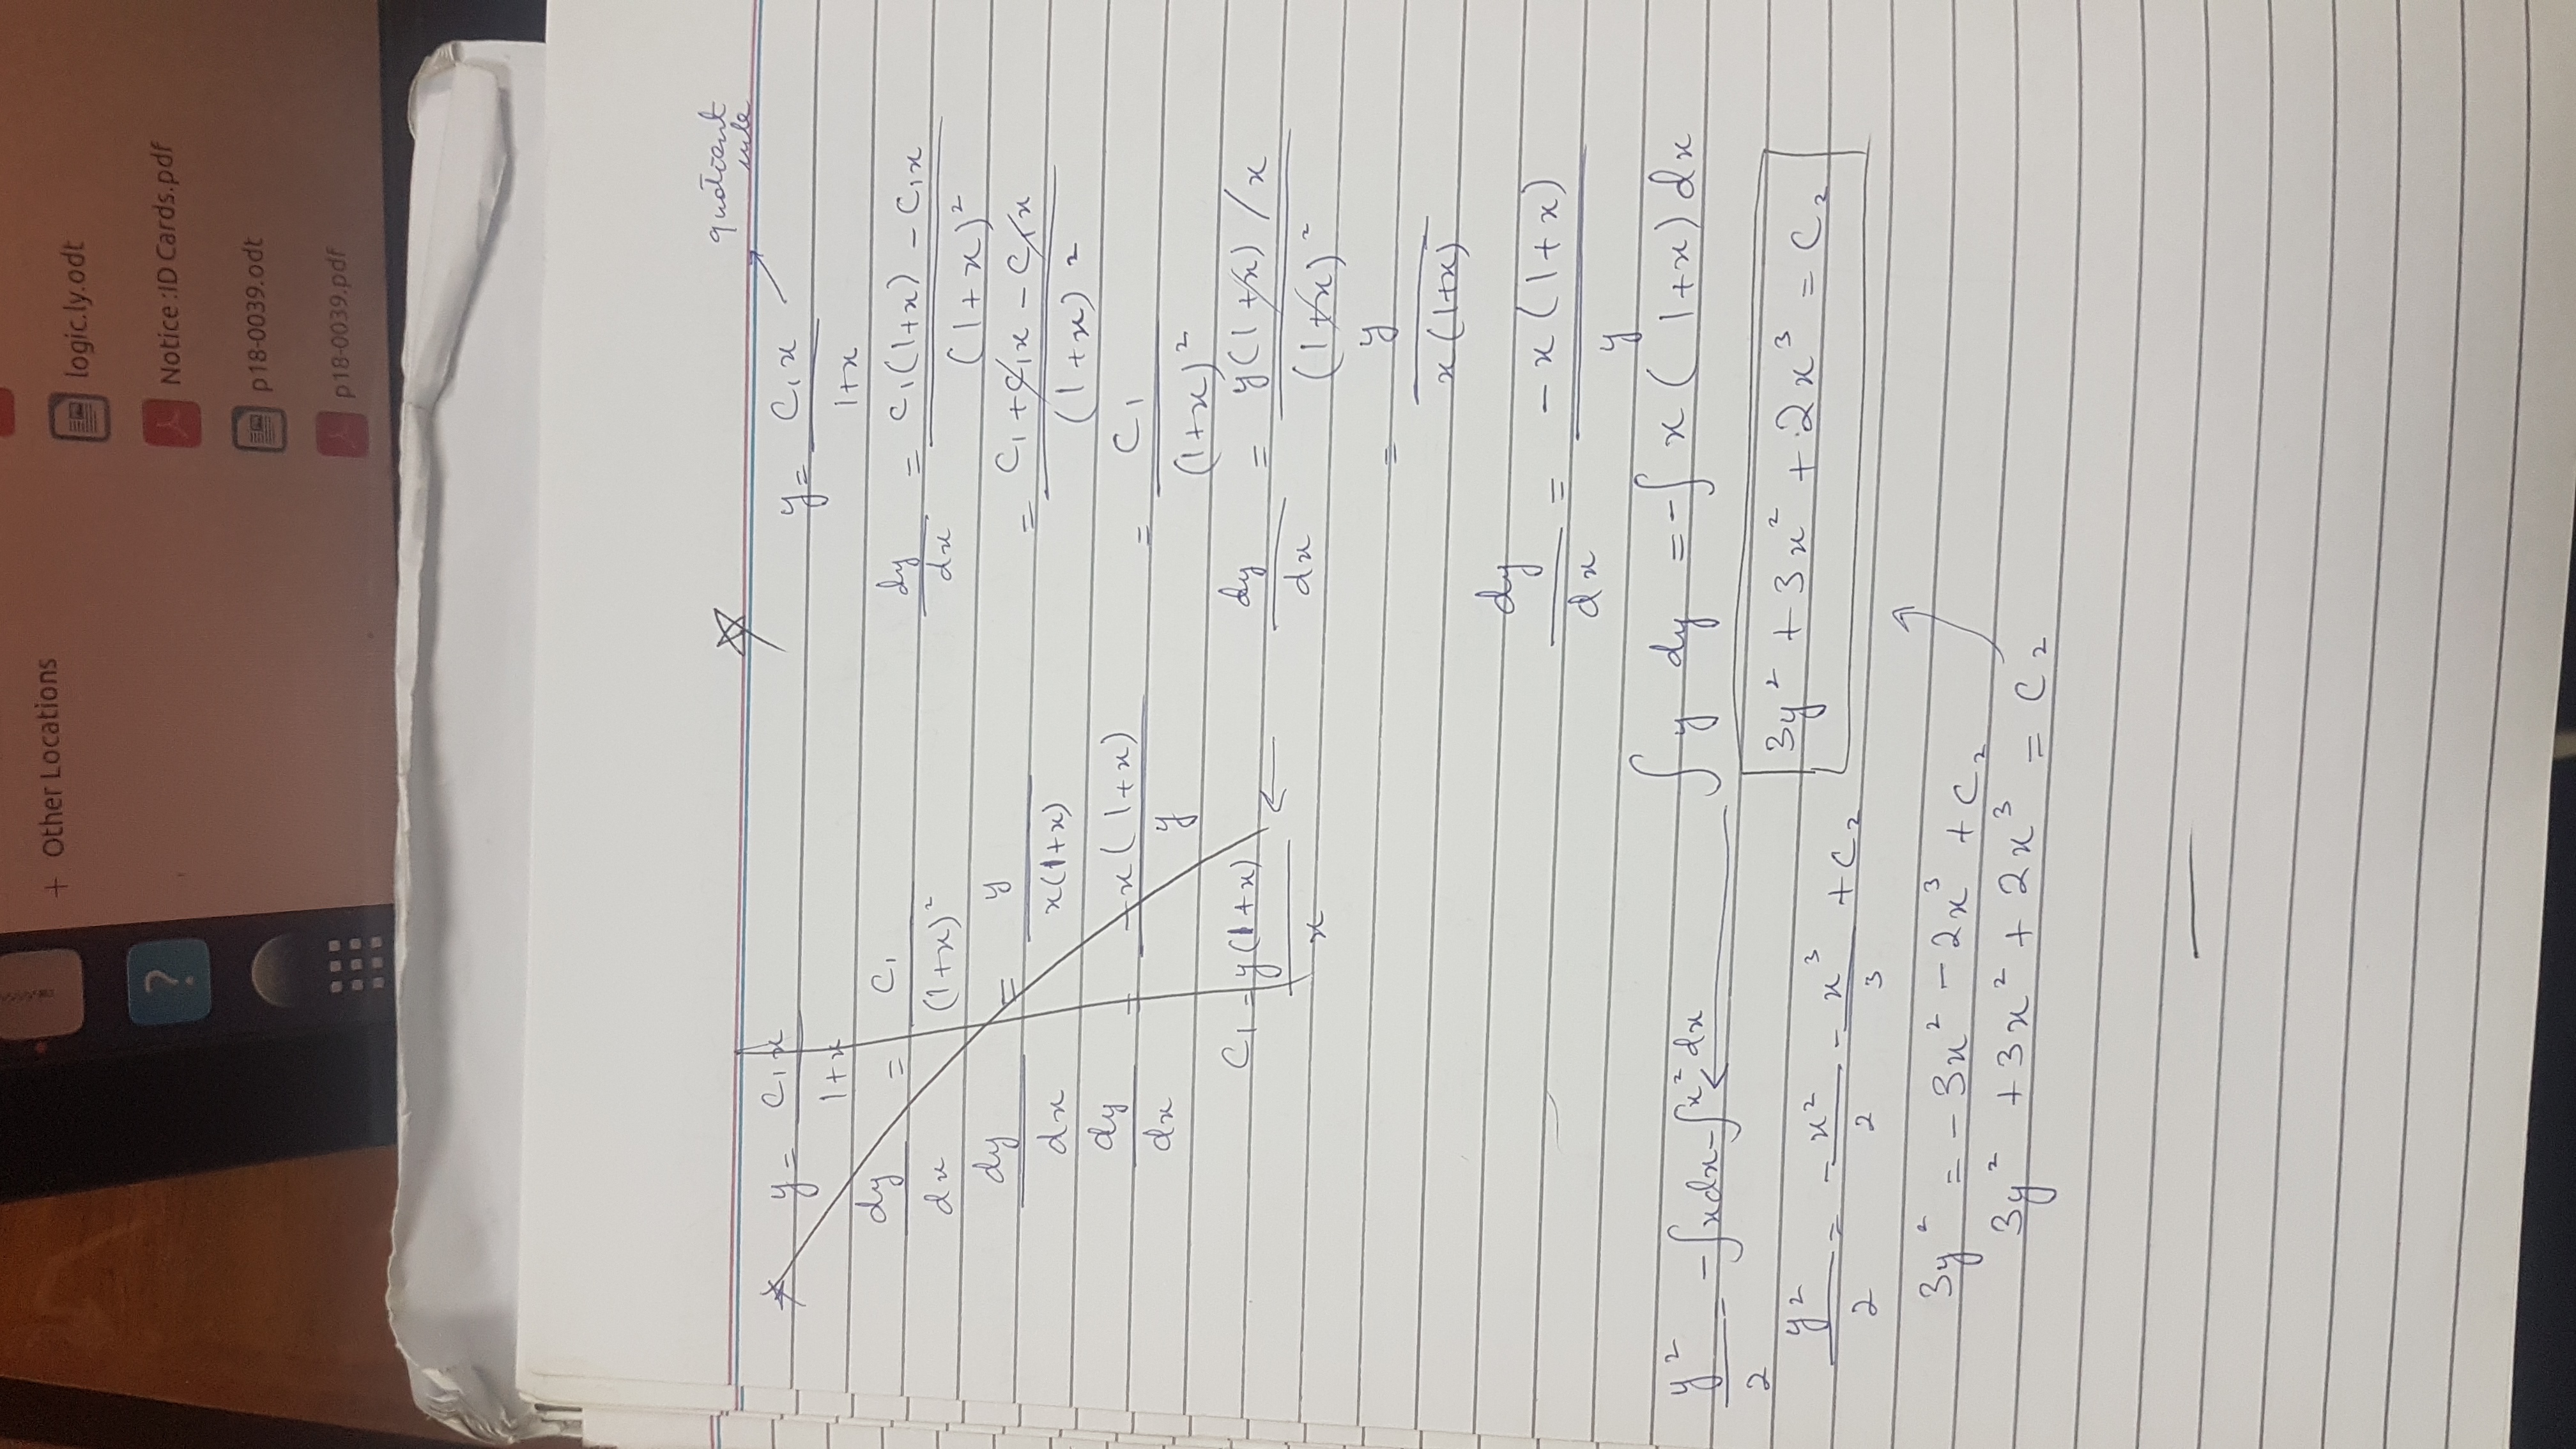 + Other Locations
logic.ly.odt
?
Notice :ID Cards.pdf
p18-0039.odt
p18-0039.pdf
y = C₁x / 1+x
dy/dx = C₁ / (1+x)²
dy/dx = y / x(1+x)
dy/dx = -x(1+x) / y
C₁ = y(1+x) / x ←
quotient
rule
y = C₁x / 1+x
dy/dx = C₁(1+x) - C₁x / (1+x)²
= C₁ + C₁x - C₁x / (1+x)²
= C₁ / (1+x)²
dy/dx = y(1+x)/x / (1+x)²
= y / x(1+x)
dy/dx = -x(1+x) / y
∫ y dy = -∫ x(1+x) dx
y²/2 = -∫xdx - ∫x²dx
y²/2 = -x²/2 - x³/3 + C₂
3y² = -3x² - 2x³ + C₂
3y² + 3x² + 2x³ = C₂
3y² + 3x² + 2x³ = C₂